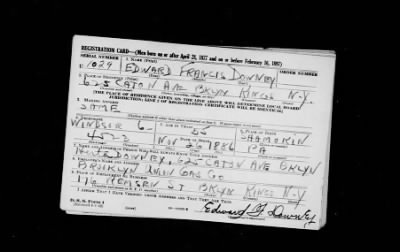 REGISTRATION CARD—(Men born on or after April 28, 1877 and on or before February 16, 1897)
SERIAL NUMBER 1. NAME (Print) ORDER NUMBER
U 1029 EDWARD FRANCIS DOWNEY
2. PLACE OF RESIDENCE (Print)
625 CATON AVE BKLYN KINGS N.Y.
[THE PLACE OF RESIDENCE GIVEN ON THE LINE ABOVE WILL DETERMINE LOCAL BOARD
JURISDICTION; LINE 2 OF REGISTRATION CERTIFICATE WILL BE IDENTICAL]
3. MAILING ADDRESS
SAME
4. TELEPHONE 5. AGE IN YEARS 6. PLACE OF BIRTH
WINDSOR 6- 55 SHAMOKIN
DATE OF BIRTH
NOV 26 1886 PA
7. NAME AND ADDRESS OF PERSON WHO WILL ALWAYS KNOW YOUR ADDRESS
DOWNEY, 625 CATON AVE BKLYN
8. EMPLOYER'S NAME AND ADDRESS
BROOKLYN UNION GAS CO
9. PLACE OF EMPLOYMENT OR BUSINESS
176 REMSEN ST BKLYN KINGS N.Y
I AFFIRM THAT I HAVE VERIFIED ABOVE ANSWERS AND THAT THEY ARE TRUE.
D. S. S. Form 1
Edward F Downey